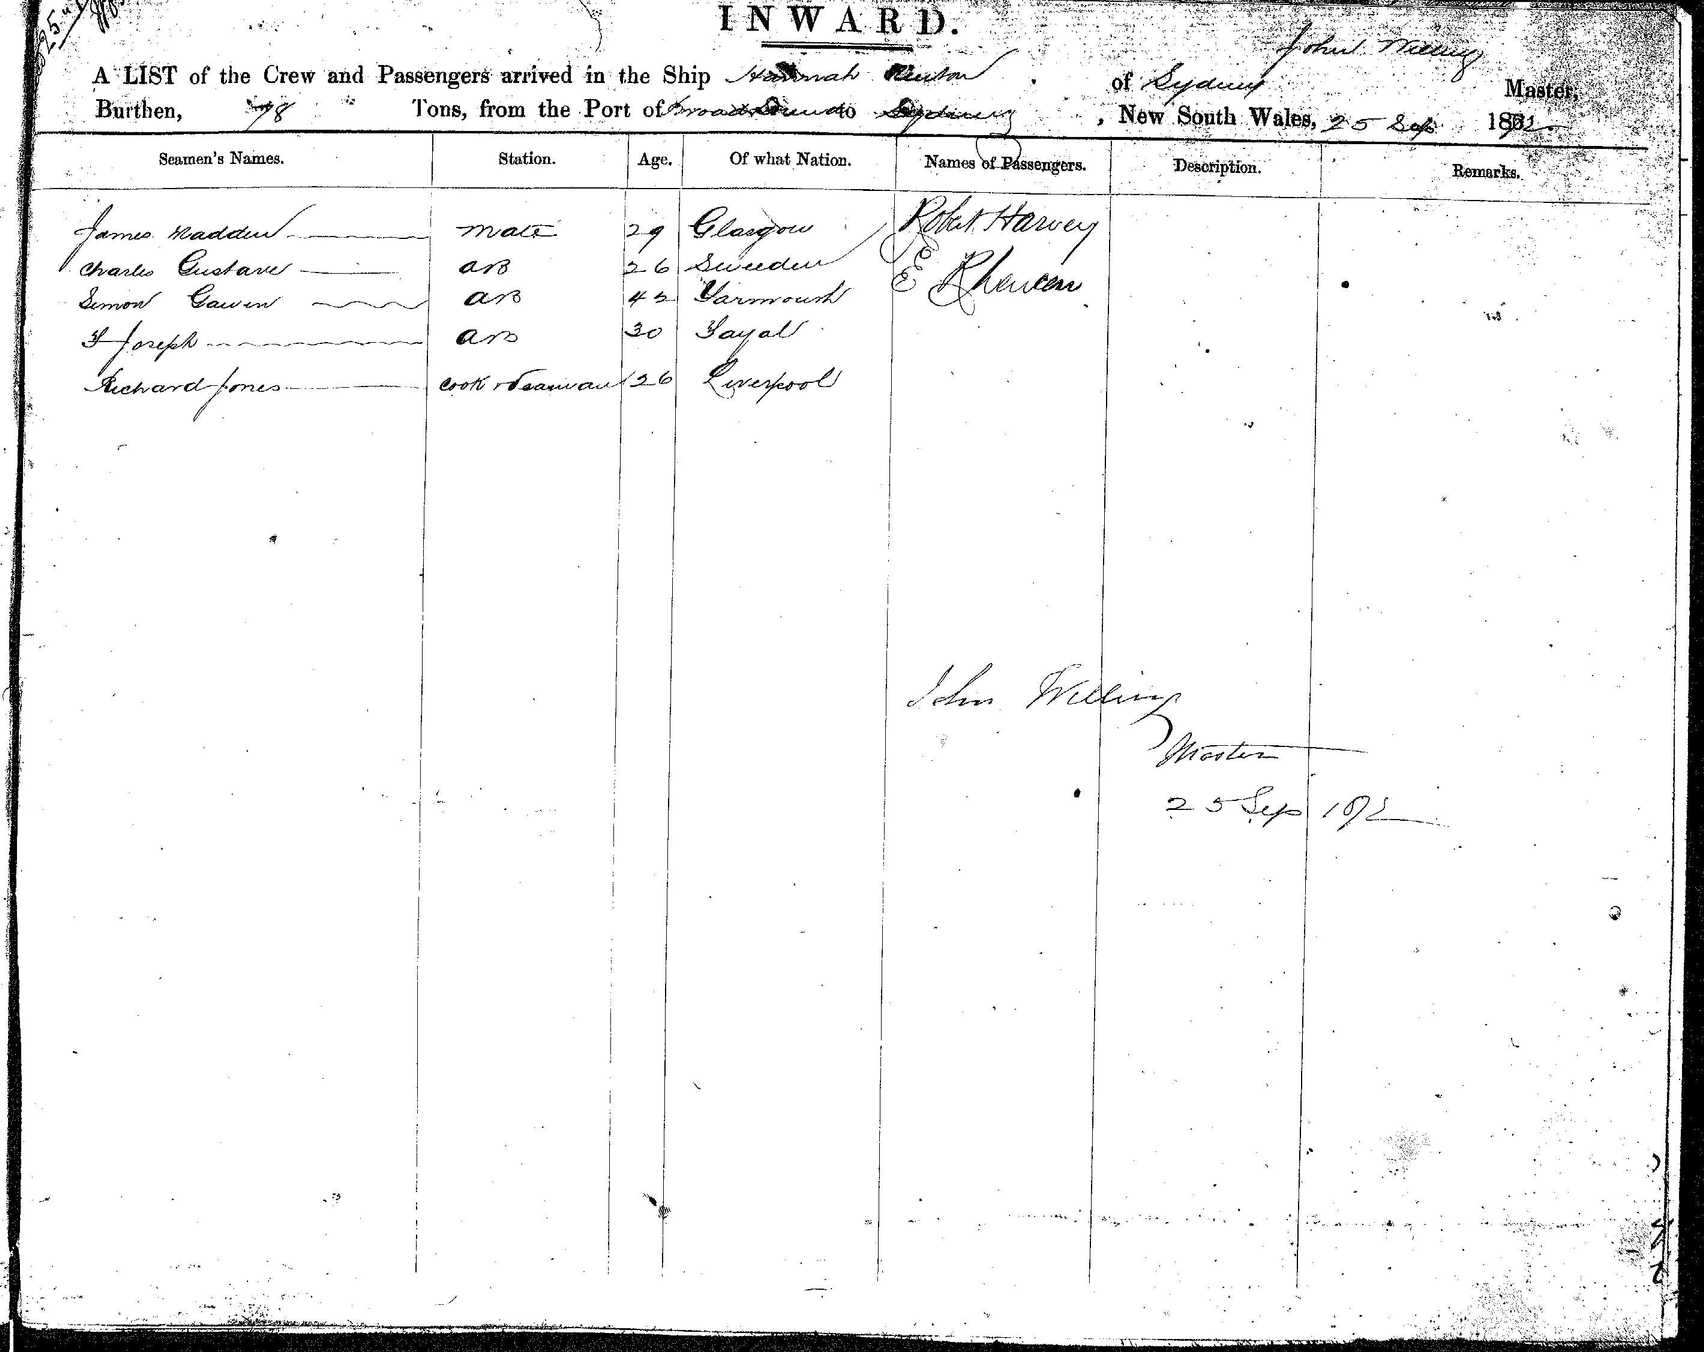 INWARD.
John Willing
A LIST of the Crew and Passengers arrived in the Ship Hannah Newton of Sydney Master,
Burthen, 78 Tons, from the Port of Broad Sound to Sydney, New South Wales, 25 Sep 1872
Seamen's Names. Station. Age. Of what Nation. Names of Passengers. Description. Remarks.
James Madden Mate 29 Glasgow Robert Harvey
Charles Gustave AB 26 Sweeden E
Simon Gawen AB 42 Yarmouth
Joseph AB 30 Fayal
Richard Jones Cook & Seaman 26 Liverpool
John Willing
Master
25 Sep 1872